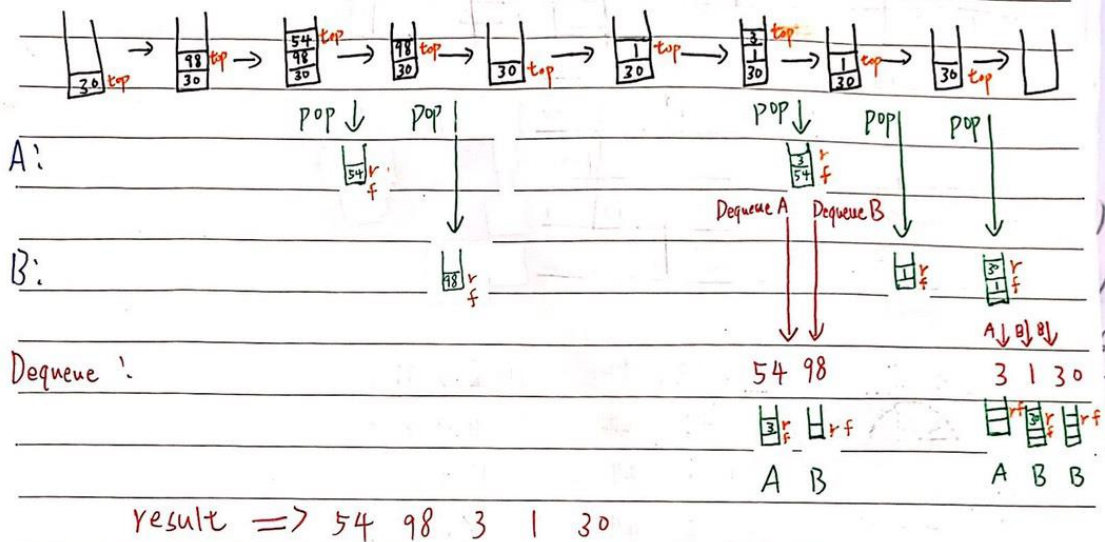 54 top 3 top
98 top 98 98 top 1 top 1 1 top
30 top 30 30 30 30 top 30 30 30 30 top
pop pop pop pop pop
A: 54 r f 3 54 r f
Dequeue A Dequeue B
B: 98 r f 1 r f 30 1 r f
A B B
Dequeue : 54 98 3 1 30
3 r f r f r f 30 r f r f
A B A B B
result => 54 98 3 1 30